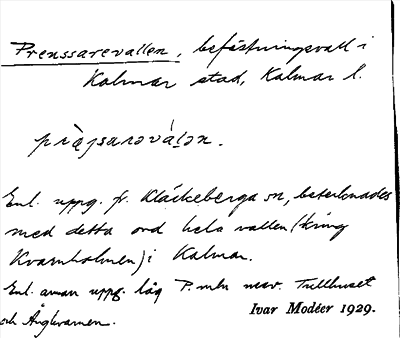 Preussarevallen, befästningsvall i
Kalmar stad, Kalmar l.
pràɟsarəvá̱lən.
Enl. uppg. fr. Kläckeberga sn, betecknades
med detta ord hela vallen (kring
Kvarnholmen) i Kalmar.
Enl. annan uppg. låg P. mln nuv. Tullhuset
och Ångkvarnen.
Ivar Modéer 1929.